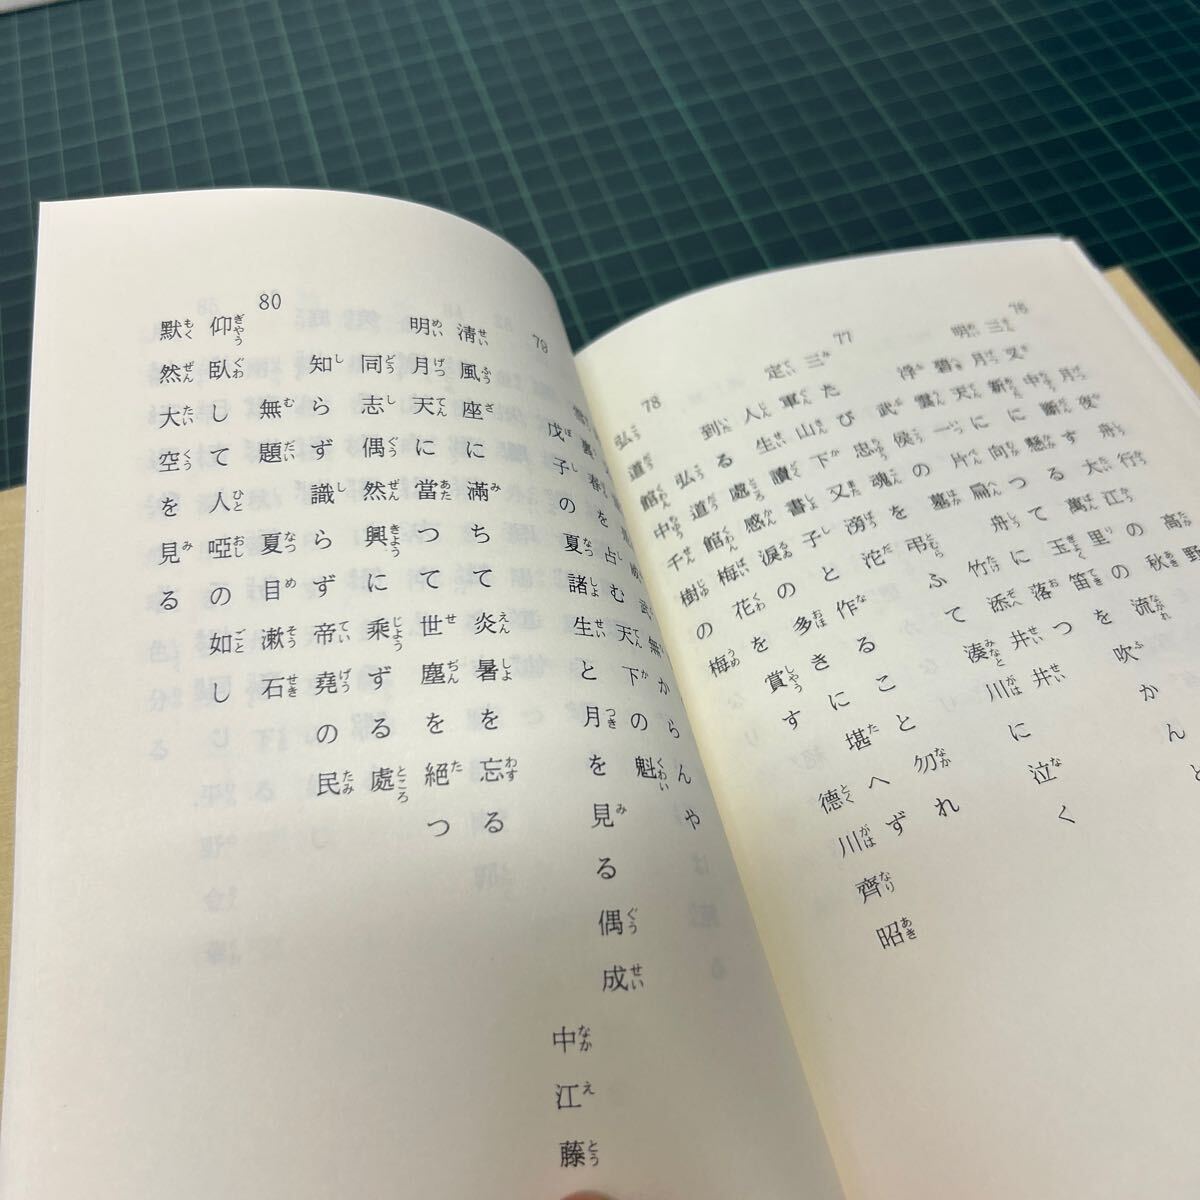 76
三叉中斷す大江の秋
明月新に懸つる萬里の流
碧天に向つて玉笛を吹かんと
浮雲一片
77
三たび忠魂を弔ふて湊川に泣く
定軍山下又滂沱
人生讀書子と作ること勿れ
到る處感淚の多きに堪へず
78
弘道館梅花を賞す 德川齊昭
弘道館中千樹の梅
武無からんや
裏春を占む天下の魁
79
戊子の夏諸生と月を見る偶成 中江藤
淸風座に滿ちて炎暑を忘る
明月天に當つて世塵を絕つ
同志偶然興に乘ずる處
知らず識らず帝堯の民
80
無題 夏目漱石
仰臥して人啞の如し
默然大空を見る